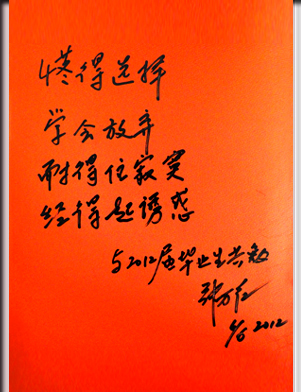 懂得选择
学会放弃
耐得住寂寞
经得起诱惑
与2012届毕业生共勉
6/6 2012